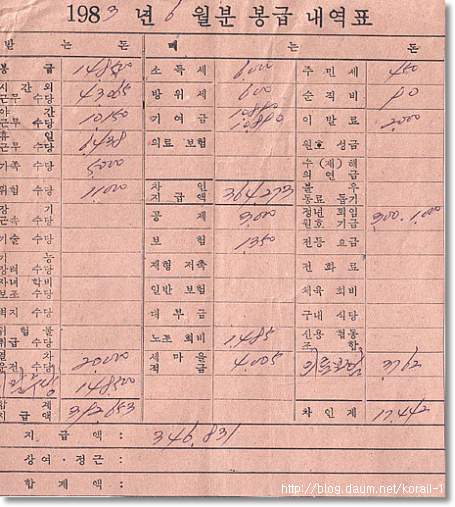 1983 년 6 월분 봉급 내역표
받 는 돈 떼 는 돈
봉 급 148,500 소 득 세 주 민 세 450
시 간 외 근무 수당 방 위 세 600 순 직 비
야 간 근무 수당 10,150 기 여 금 10,880 이 발 료 2000
휴 일 근무 수당 의료 보험 원호 성금
가족 수당 수 (재) 해 의 연 금
위험 수당 11,000 차 인 지 급 액 364,273 불 우 동료 돕기
장 기 근속 수당 공 제 정년 퇴임 원호 기금
기술 수당 보 험 1,350 전등 요금
기 능 장려 수당 재형 저축 전 화 료
자녀 학비 보조 수당 일반 보험 체육 회비
벽지 수당 대 부 금 구내 식당
위 험 물 취급 수당 노조 회비 1,485 신용 협동 조 합
열 차 운전 수당 새 마 을 적 금
148,500
합 계 지 급 액 차 인 계 17,442
지 급 액 : 346,831
상여 · 정근 :
합 계 액 :
http://blog.daum.net/korail-1